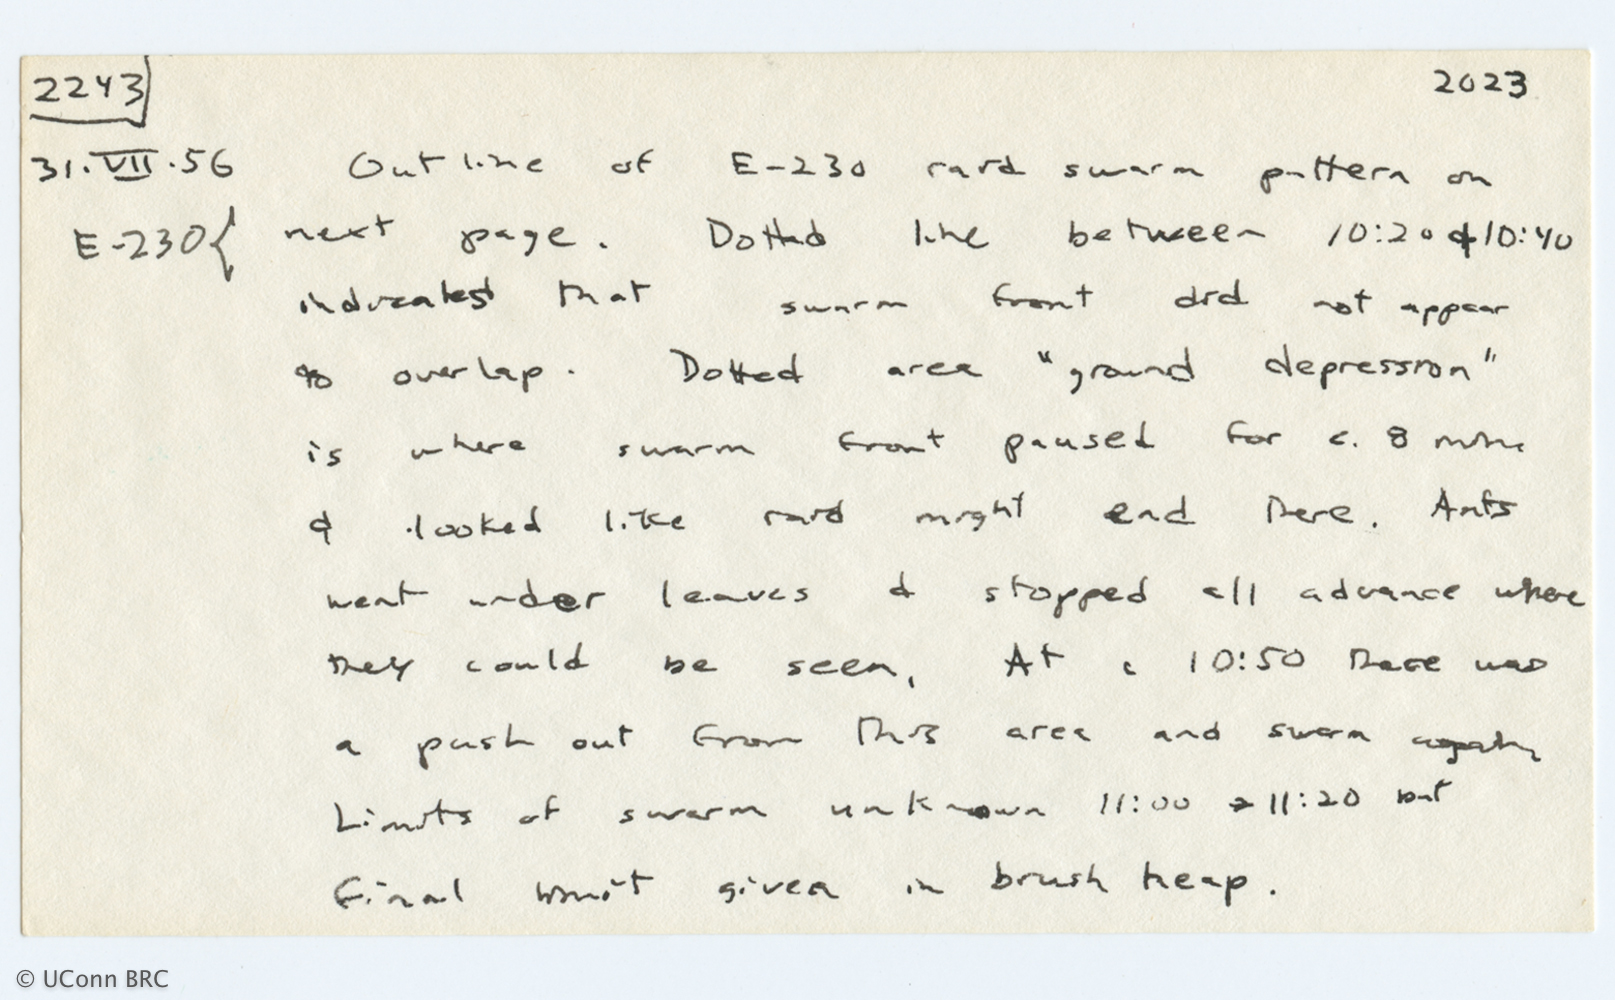 2243 2023
31.VII.56 Outline of E-230 raid swarm pattern on
E-230{ next page. Dotted line between 10:20 & 10:40
indicates that swarm front did not appear
to overlap. Dotted area "ground depression"
is where swarm front paused for c. 8 min.
& looked like raid might end there. Ants
went under leaves & stopped all advance where
they could be seen. At c 10:50 there was
a push out from this area and swarm again
Limits of swarm unknown 11:00 → 11:20 but
final limit given in brush heap.
© UConn BRC